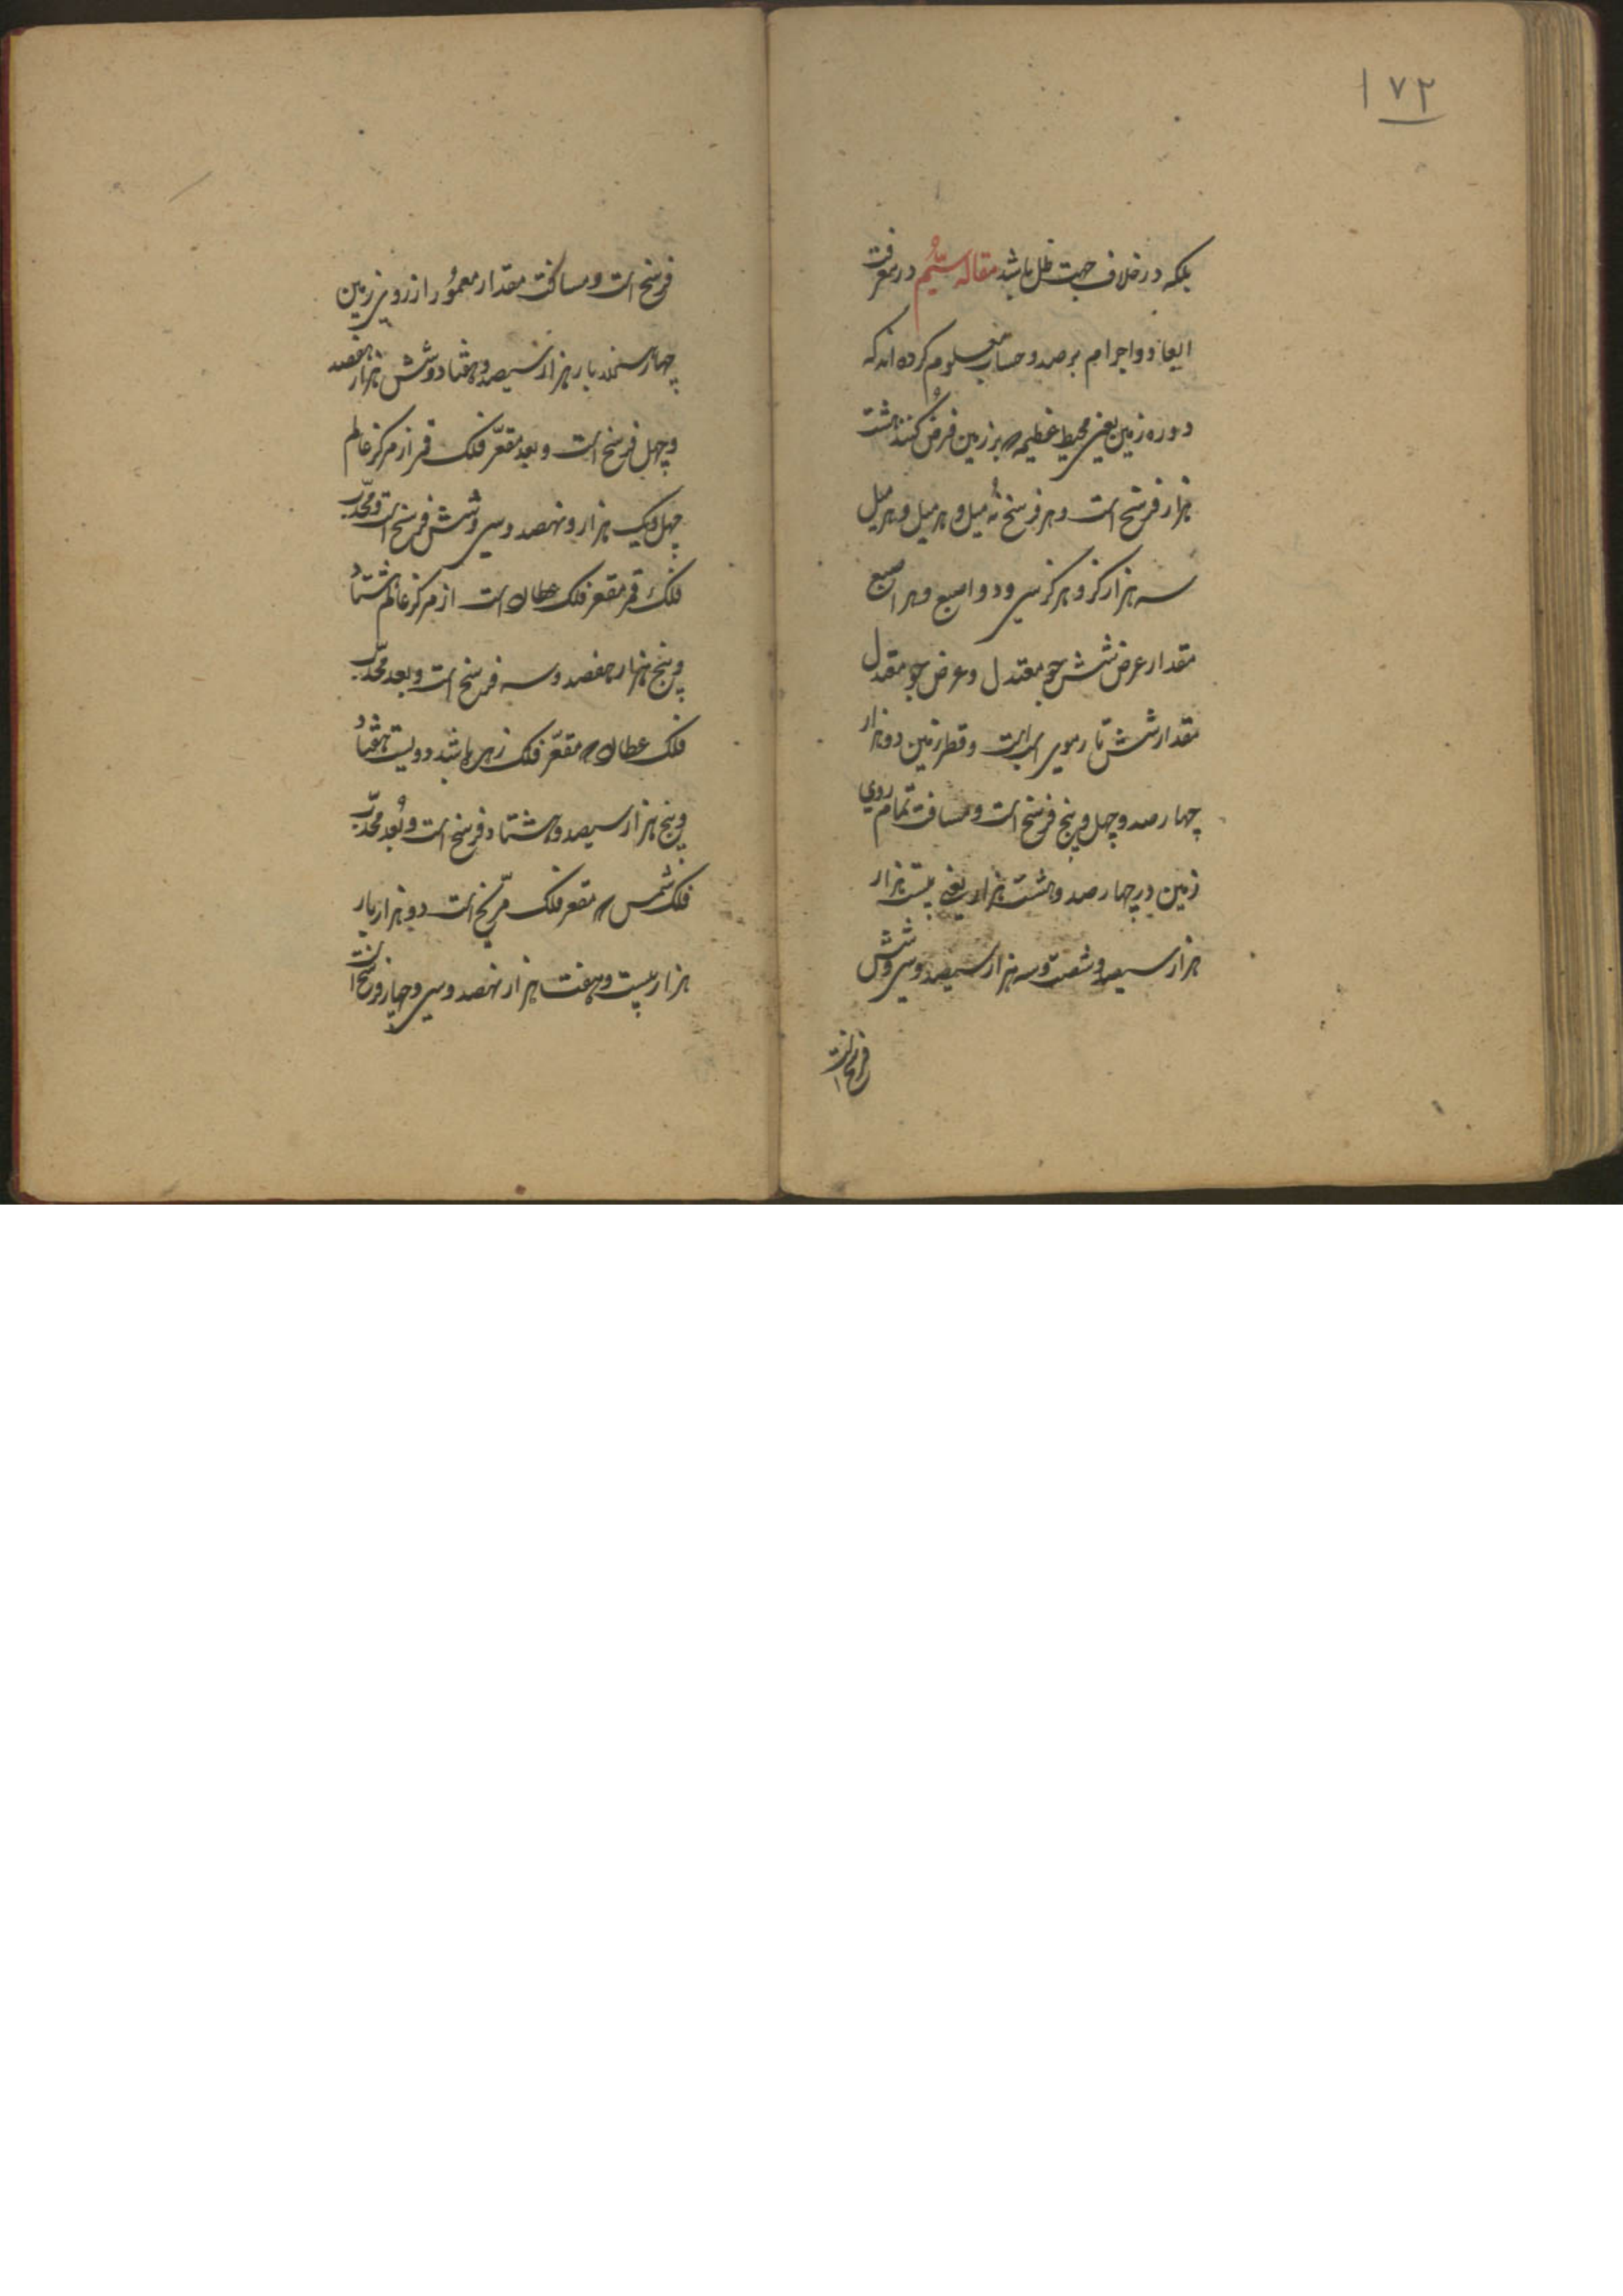 ۱۷۲
بلکه در خلاف جهت ظل باشد مقاله سیم در معرفت
ابعاد و اجرام برصد و حساب معلوم کرده اند که
دوره زمین یعنی محیط عظیمه که بر زمین فرض کنند هشت
هزار فرسخ است و هر فرسخ سه میل و هر میل و هر میل
سه هزار کز و هر کز سی و دو اصبع و هر اصبع
مقدار عرض شش جو معتدل و عرض جو معتدل
مقدار شش تار موی اسب است و قطر زمین دو هزار
چهار صد و چهل و پنج فرسخ است و مسافت تمام روی
زمین چهار صد و هشت هزار یعنی بیست هزار
هزار سیصد و شصت و سه هزار سیصد و سی و شش
فرسخ است
فرسخ است و مساحت مقدار معمور از روی زمین
چهار هزار سیصد و هفتاد و شش هزار هفصد
و چهل فرسخ است و بعد مقعّر فلک قمر از مرکز عالم
چهل و یک هزار و نهصد و سی و شش فرسخ است و محدّب
فلک قمر مقعر فلک عطارد است از مرکز عالم هشتاد
و پنج هزار هفصد و سه فرسخ است و بعد محدّب
فلک عطارد که مقعّر فلک زهره باشد دویست هفتاد
و پنج هزار سیصد و هشتاد فرسخ است و بُعد محدّب
فلک شمس که مقعر فلک مرّیخ است دو هزار بار
هزار بیست و هفت هزار نهصد و سی و چهار فرسخ است